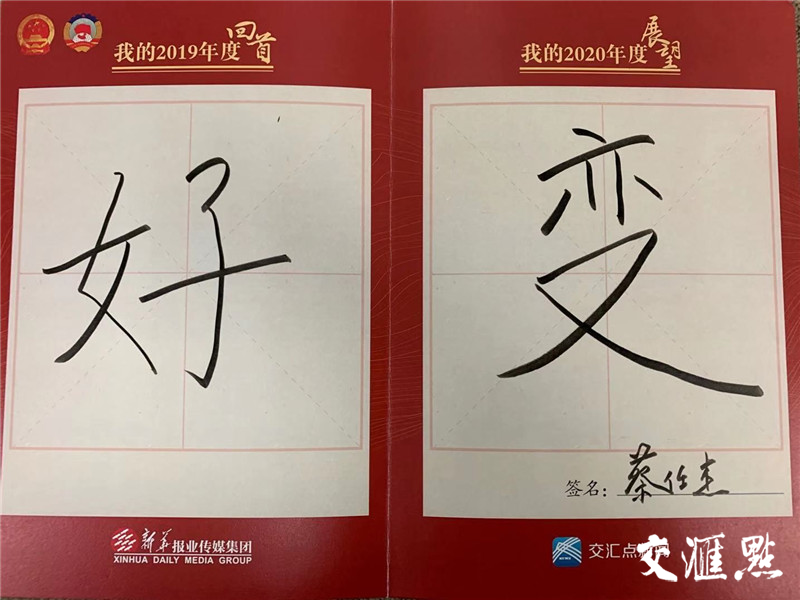 我的2019年度回首
好
新华报业传媒集团
XINHUA DAILY MEDIA GROUP
我的2020年度展望
变
签名：蔡任杰
交汇点新闻
交滙點